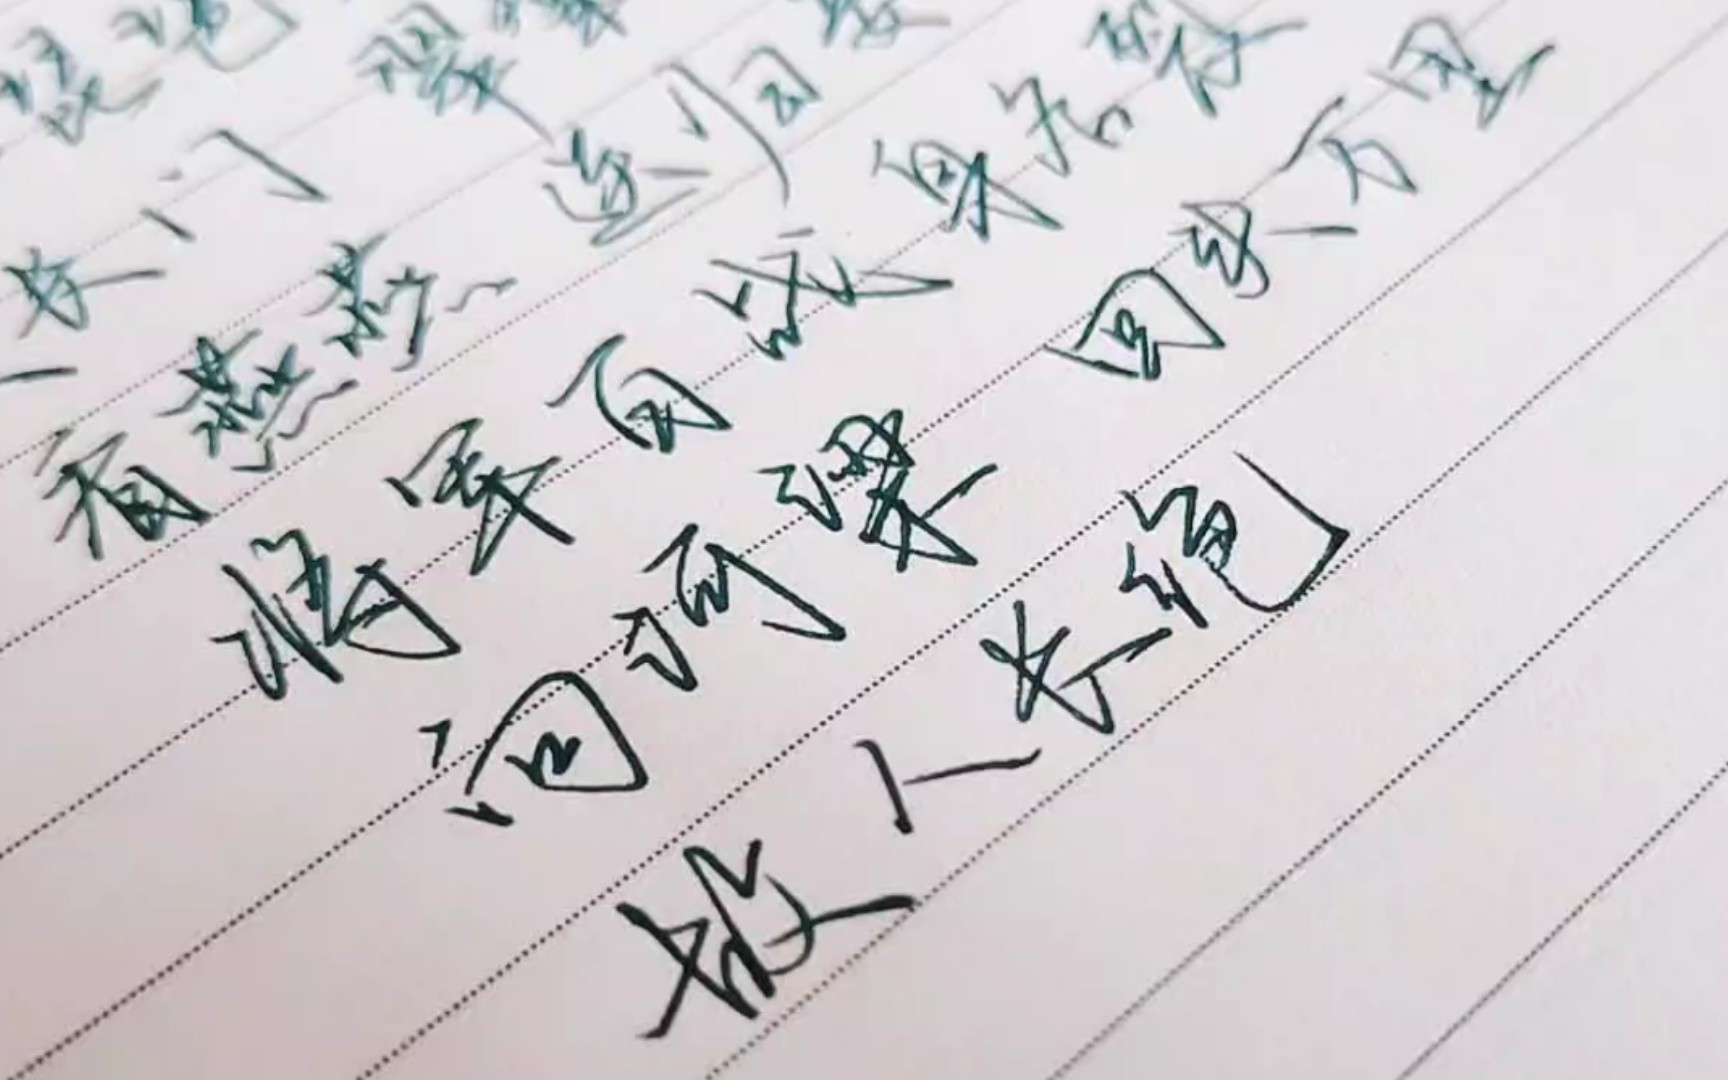 琵琶
长门翠辇
看燕燕送归妾
将军百战身名裂
向河梁回头万里
故人长绝